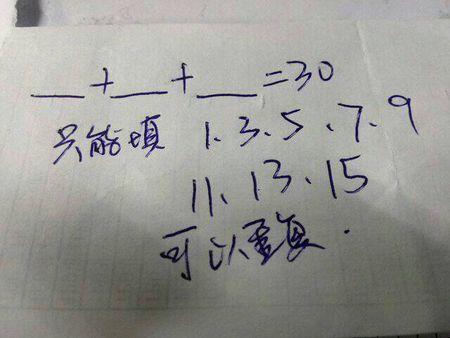 __+__+__=30
只能填 1.3.5、7、9
11、13、15
可以重复.